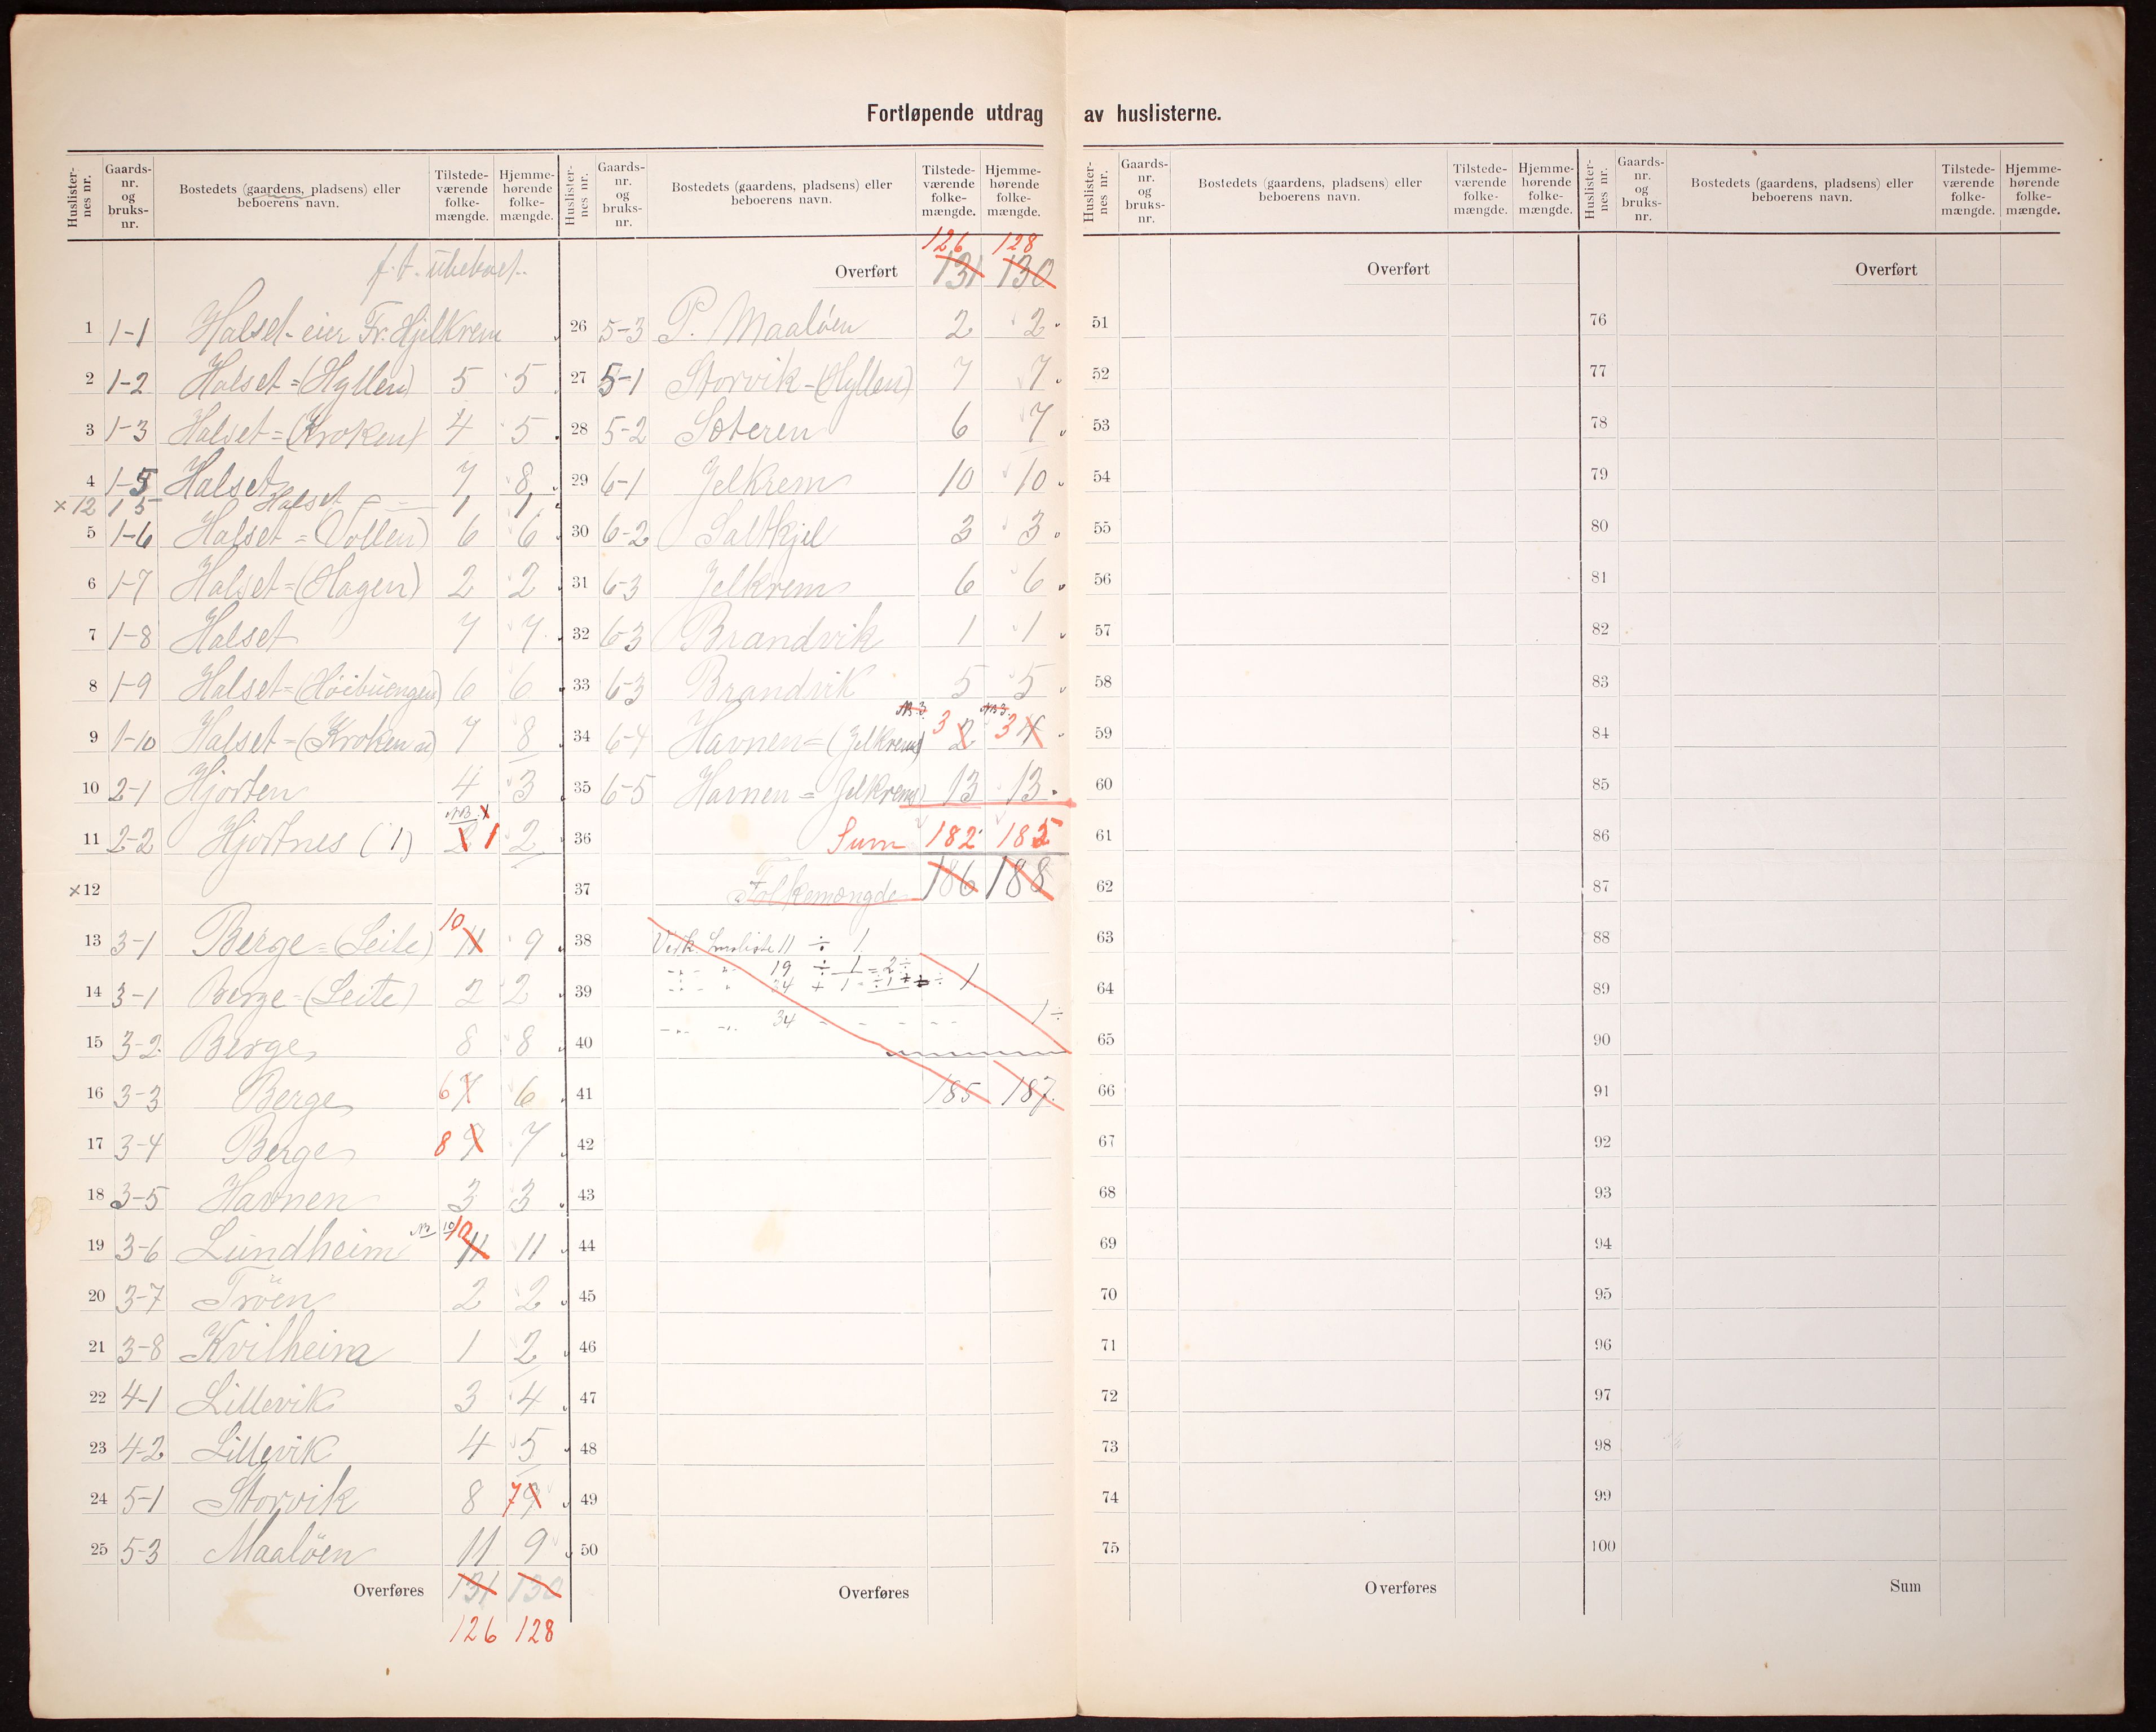 Fortløpende utdrag av huslisterne.
Huslisternes nr. Gaardsnr. og bruksnr. Bostedets (gaardens, pladsens) eller beboerens navn. Tilstedeværende folkemængde. Hjemmehørende folkemængde.
f. t. ubeboet.
1 1-1 Halset - eier Fr. Hjelkrem
2 1-2 Halset = (Hyllen) 5 5
3 1-3 Halset = (Kroken) 4 5
4 1-5 Halset 7 8
×12 1 5 Halset 1 1
5 1-6 Halset = (Vollen) 6 6
6 1-7 Halset = (Hagen) 2 2
7 1-8 Halset 7 7
8 1-9 Halset = (Höibuengen) 6 6
9 1-10 Halset = (Kroken n) 7 8
10 2-1 Hjorten 4 3
NB 1
11 2-2 Hjortnes (1) 2 1 2
×12
13 3-1 Berge = (Leite) 11 10 9
14 3-1 Berge = (Leite) 2 2
15 3-2 Berge 8 8
16 3-3 Berge 6 7 6
17 3-4 Berge 8 9 7
18 3-5 Havnen 3 3
19 3-6 Lundheim NB 10 10 11 11
20 3-7 Tröen 2 2
21 3-8 Kvilheim 1 2
22 4-1 Lillevik 3 4
23 4-2 Lillevik 4 5
24 5-1 Storvik 8 7 9
25 5-3 Maalöen 11 9
Overføres 131 130
126 128
Huslisternes nr. Gaardsnr. og bruksnr. Bostedets (gaardens, pladsens) eller beboerens navn. Tilstedeværende folkemængde. Hjemmehørende folkemængde.
126 128
Overført 131 130
26 5-3 P. Maalöen 2 2
27 5-1 Storvik = (Hyllen) 7 7
28 5-2 Soteren 6 7
29 6-1 Jelkrem 10 10
30 6-2 Saltkjel 3 3
31 6-3 Jelkrem 6 6
32 6-3 Brandvik 1 1
33 6-3 Brandvik 5 5
NB 3 NB 3
34 6-4 Havnen = (Jelkrem) 3 2 3 4
35 6-5 Havnen = Jelkrem) 13 13
36 Sum 182 185
37 Folkemængde 186 188
38 Virk. husliste 11 ÷ 1
19 ÷ 1 = 2 ÷
39 34 + 1 = ÷ 1 ÷ 1
34 1 ÷
40
41 185 187
42
43
44
45
46
47
48
49
50
Overføres
Huslisternes nr. Gaardsnr. og bruksnr. Bostedets (gaardens, pladsens) eller beboerens navn. Tilstedeværende folkemængde. Hjemmehørende folkemængde.
Overført
51
52
53
54
55
56
57
58
59
60
61
62
63
64
65
66
67
68
69
70
71
72
73
74
75
Overføres
Huslisternes nr. Gaardsnr. og bruksnr. Bostedets (gaardens, pladsens) eller beboerens navn. Tilstedeværende folkemængde. Hjemmehørende folkemængde.
Overført
76
77
78
79
80
81
82
83
84
85
86
87
88
89
90
91
92
93
94
95
96
97
98
99
100
Sum